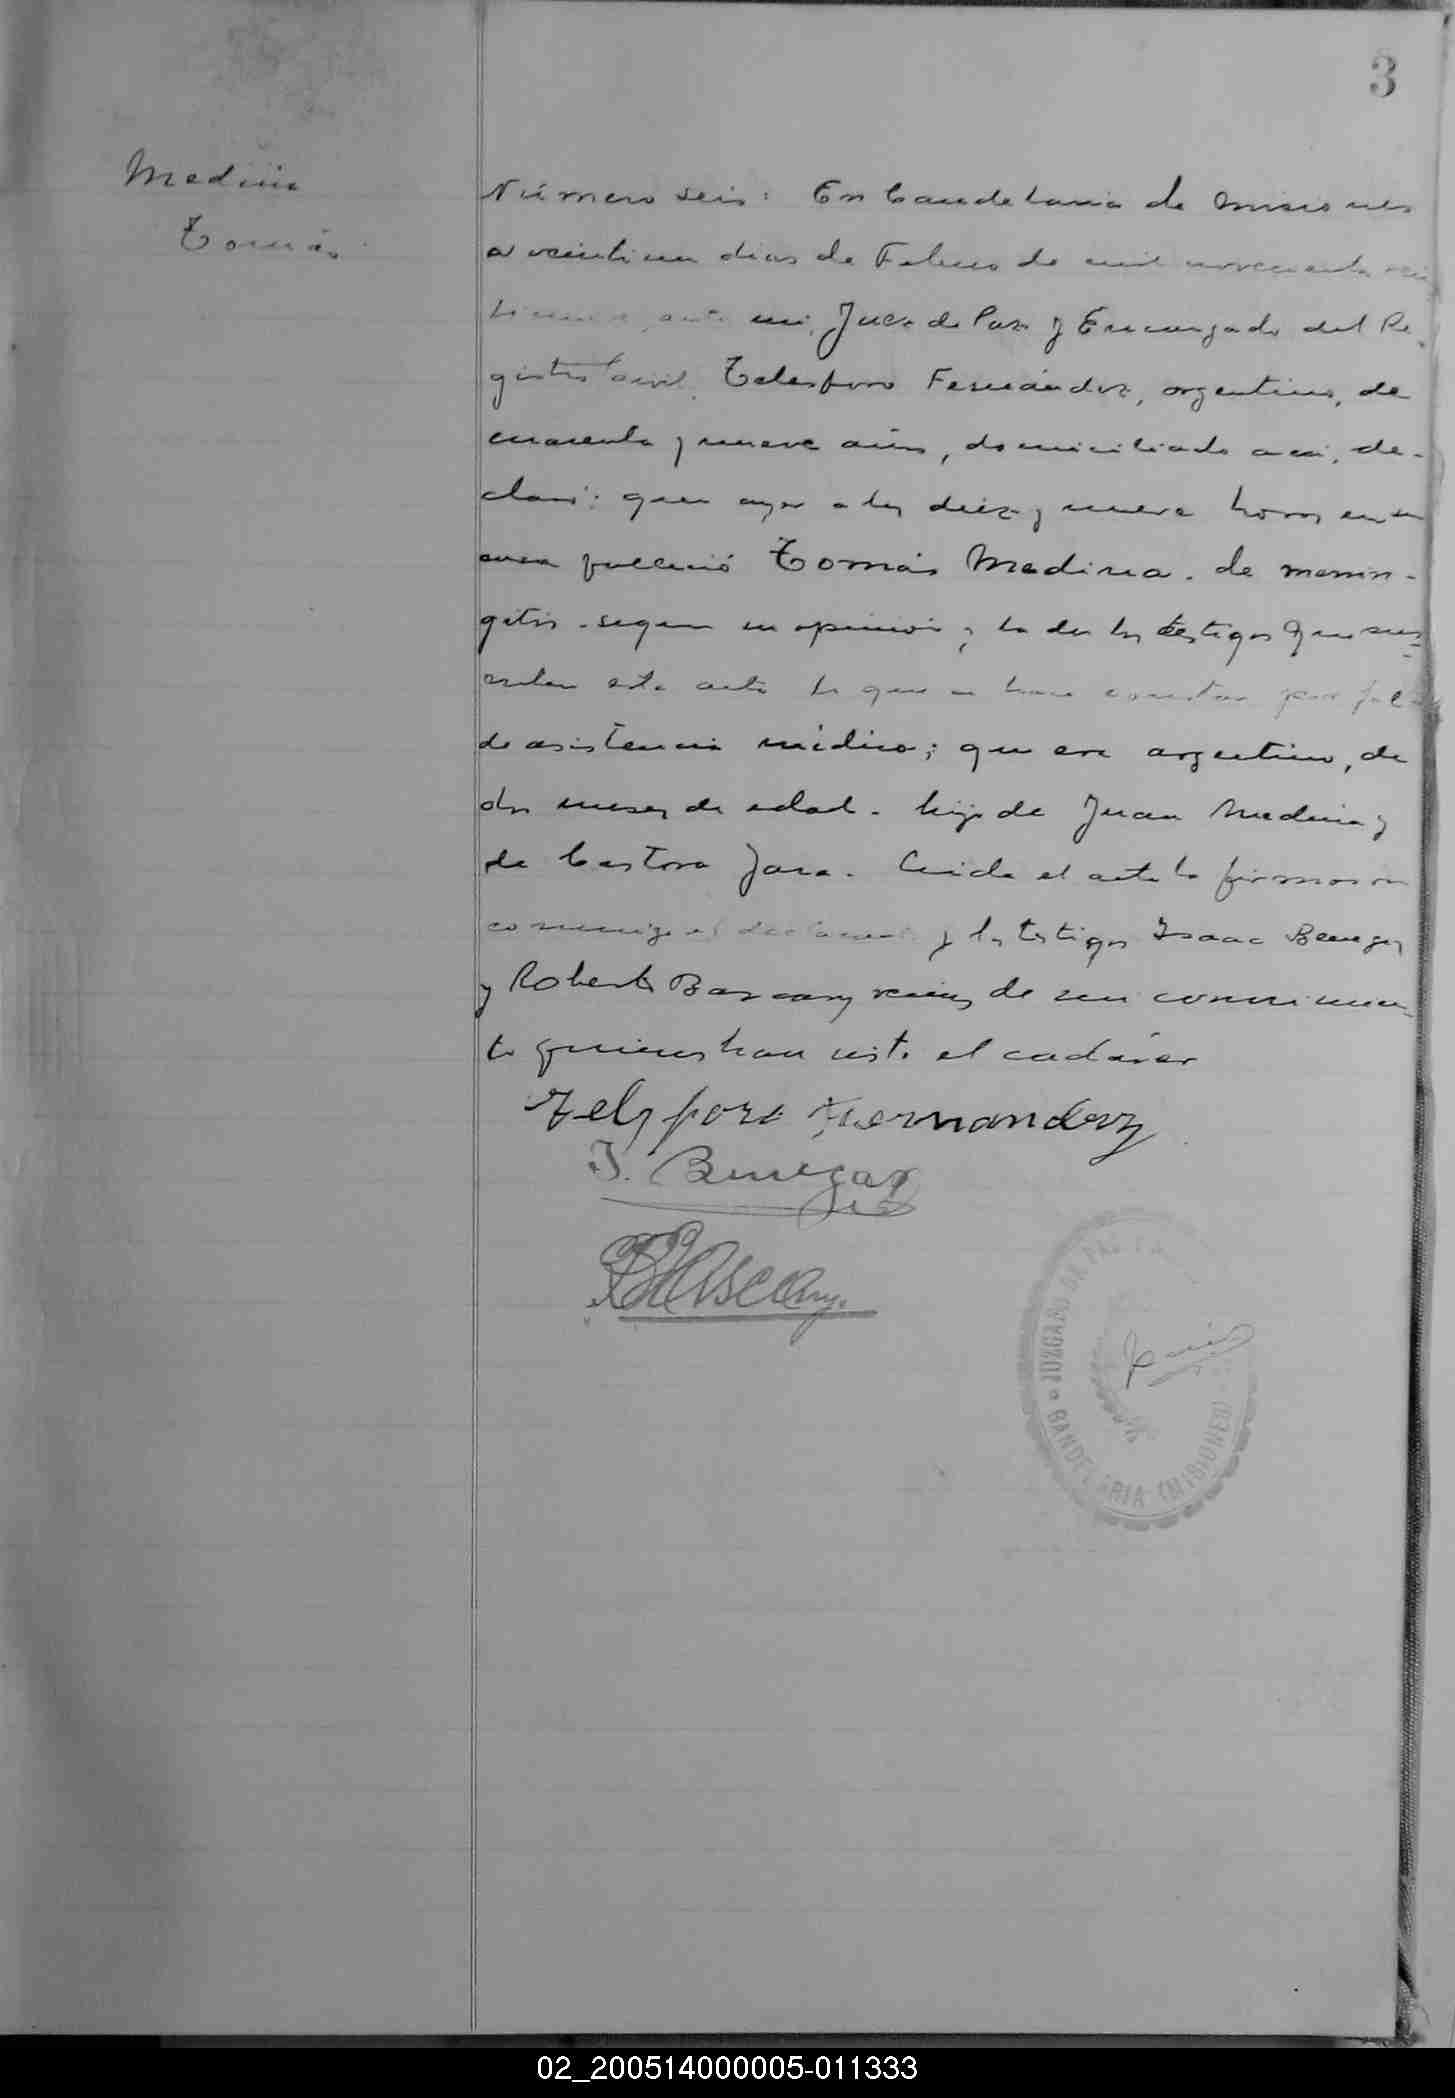 3
Medina
Tomás
Número seis: En Candelaria de Misiones
a veintiun dias de Febrero de mil novecientos vein
ante mi, Juez de Paz y Encargado del Re-
gistro Civil, Telesforo Fernández, argentino, de
cuarenta y nueve años, domiciliado aca, de-
claró: que ayer a las diez y nueve horas en su
casa falleció Tomás Medina, de menin-
gitis, segun su opinion y la de los testigos que sus-
criben esta acta lo que se hace constar por fal
de asistencia médica; que era argentino, de
dos meses de edad, hijo de Juan Medina y
de Castora Jara. Leida el acta la firmaron
conmigo el declarante y los testigos Isaac Benegas
y Roberto Bascary vecinos de mi conocimien-
to quienes han visto el cadáver
Telesforo Fernandez
I. Benegas
RBascary.
JUZGADO DE PAZ
CANDELARIA (MISIONES)
02_200514000005-011333